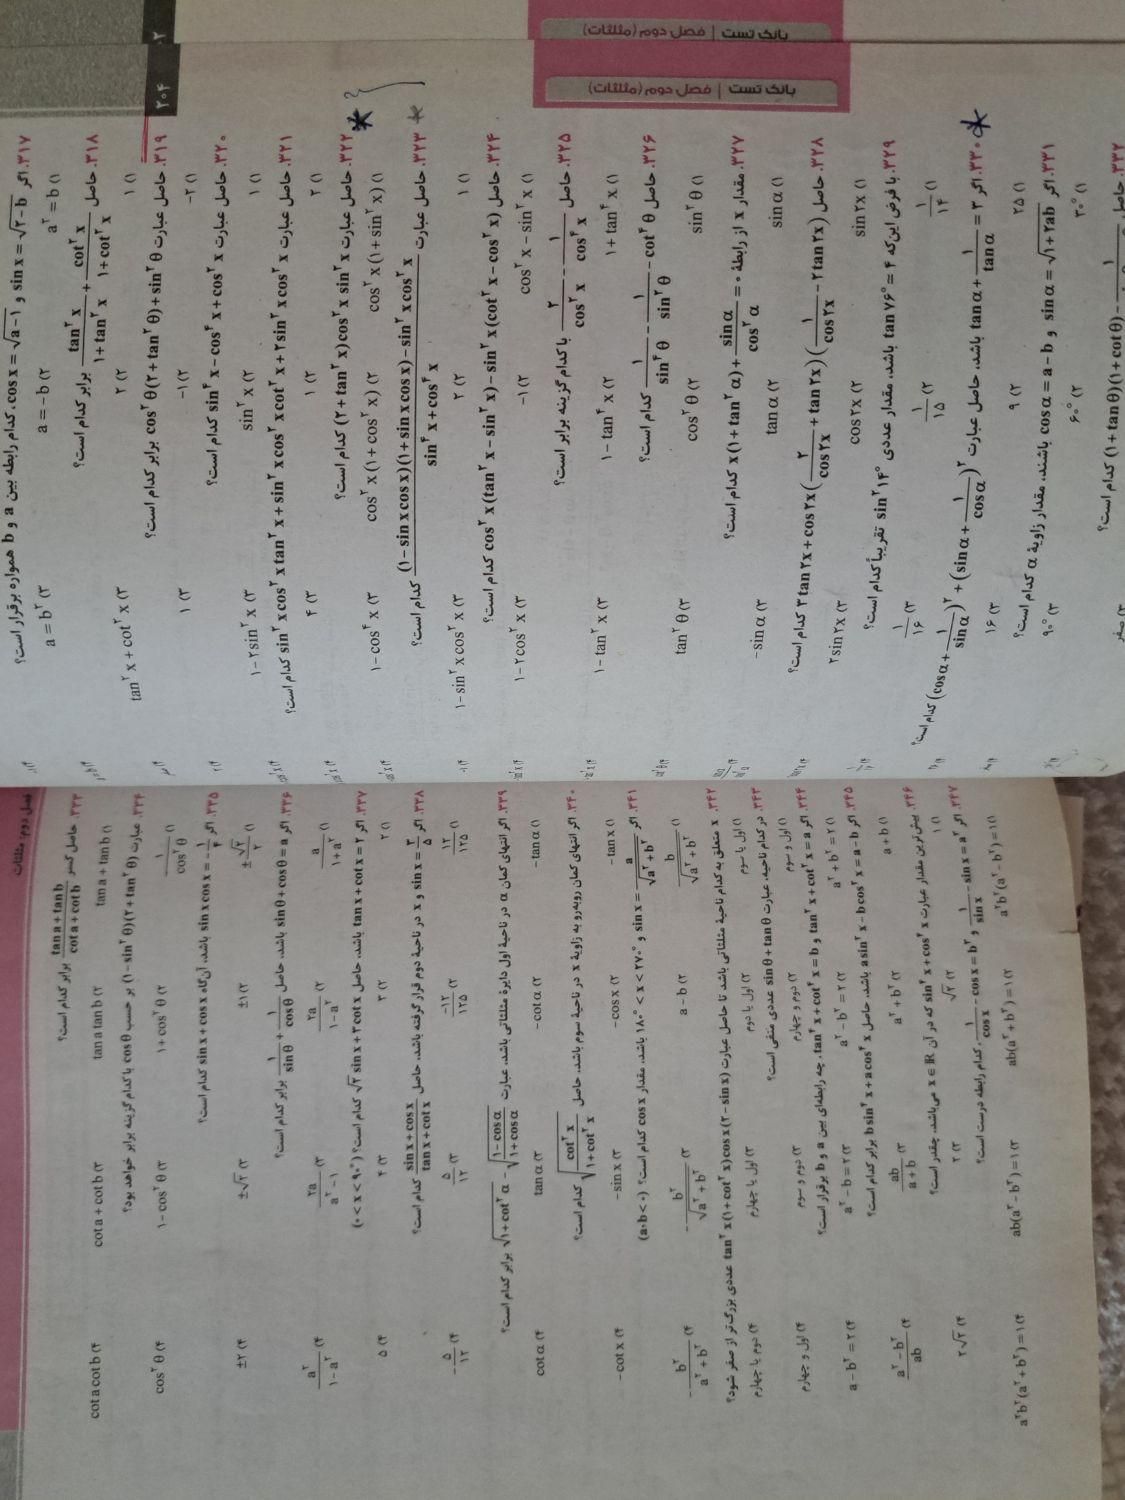 بانک تست | فصل دوم (مثلثات)
بانک تست | فصل دوم (مثلثات)
۲۰۴
۳۱۷. اگر sin x = √۲-b و cos x = √a-۱، کدام رابطه بین a و b همواره برقرار است؟
۱) a² = b ۲) a = -b ۳) a = b²
۳۱۸. حاصل tan² x / ۱+tan² x + cot² x / ۱+cot² x برابر کدام است؟
۱) ۱ ۲) ۲ ۳) tan² x + cot² x
۳۱۹. حاصل عبارت cos² θ(۲+tan² θ)+sin² θ برابر کدام است؟
۱) -۲ ۲) -۱ ۳) ۱
۳۲۰. حاصل عبارت sin⁴ x - cos⁴ x + cos² x کدام است؟
۱) ۱ ۲) sin² x ۳) ۱-۲sin² x
۳۲۱. حاصل عبارت sin² x cos² x tan² x + sin² x cos² x cot² x + ۲sin² x cos² x کدام است؟
۱) ۲ ۲) ۱ ۳) ۴
۳۲۲. حاصل عبارت (۲+tan² x)cos² x sin² x کدام است؟
۱) cos² x(۱+sin² x) ۲) cos² x(۱+cos² x) ۳) ۱-cos⁴ x
۳۲۳. حاصل عبارت (۱-sin x cos x)(۱+sin x cos x)-sin² x cos² x / sin⁴ x+cos⁴ x کدام است؟
۱) ۱ ۲) ۲ ۳) ۱-sin² x cos² x
۳۲۴. حاصل cos² x(tan² x-sin² x)-sin² x(cot² x-cos² x) کدام است؟
۱) cos² x-sin² x ۲) -۱ ۳) ۱-۲cos² x
۳۲۵. حاصل ۲/cos² x - ۱/cos⁴ x با کدام گزینه برابر است؟
۱) ۱+tan⁴ x ۲) ۱-tan⁴ x ۳) ۱-tan² x
۳۲۶. حاصل ۱/sin⁴ θ - ۱/sin² θ - cot⁴ θ کدام است؟
۱) sin² θ ۲) cos² θ ۳) tan² θ
۳۲۷. مقدار x از رابطهٔ x(۱+tan² α)+ sin α/cos² α = ۰ کدام است؟
۱) sin α ۲) tan α ۳) -sin α
۳۲۸. حاصل ۳tan ۲x+cos ۲x(۲/cos ۲x + tan ۲x)(۱/cos ۲x - ۲tan ۲x) کدام است؟
۱) sin ۲x ۲) cos ۲x ۳) ۲sin ۲x
۳۲۹. با فرض این‌که tan ۷۶° = ۴ باشد، مقدار عددی sin² ۱۴° تقریباً کدام است؟
۱) ۱/۱۴ ۲) ۱/۱۵ ۳) ۱/۱۶
۳۳۰. اگر tan α + ۱/tan α = ۳ باشد، حاصل عبارت (cos α + ۱/sin α)² + (sin α + ۱/cos α)² کدام است؟
۱) ۲۵ ۲) ۹ ۳) ۱۶
۳۳۱. اگر sin α = √۱+۲ab و cos α = a-b باشند، مقدار زاویهٔ α کدام است؟
۱) ۳۰° ۲) ۶۰° ۳) ۹۰°
۳۳۲. حاصل (۱+tan θ)(۱+cot θ)- کدام است؟
فصل دوم: مثلثات
۳۳۳. حاصل کسر tan a+tan b / cot a+cot b برابر کدام است؟
۱) tan a+tan b ۲) tan a tan b ۳) cot a+cot b ۴) cot a cot b
۳۳۴. عبارت (۱-sin² θ)(۲+tan² θ) بر حسب cos θ با کدام گزینه برابر خواهد بود؟
۱) ۱/cos² θ ۲) ۱+cos² θ ۳) ۱-cos² θ ۴) cos² θ
۳۳۵. اگر sin x cos x = -۱/۴ باشد، آن‌گاه sin x+cos x کدام است؟
۱) ±√۲/۲ ۲) ±۱ ۳) ±√۲ ۴) ±۲
۳۳۶. اگر sin θ+cos θ = a باشد، حاصل ۱/sin θ + ۱/cos θ برابر کدام است؟
۱) a/۱+a² ۲) ۲a/۱-a² ۳) ۲a/a²-۱ ۴) a²/۱-a²
۳۳۷. اگر tan x+cot x = ۲ باشد، حاصل √۲ sin x+۳cot x کدام است؟ (۰ < x < ۹۰°)
۱) ۲ ۲) ۳ ۳) ۴ ۴) ۵
۳۳۸. اگر sin x = ۳/۵ و x در ناحیهٔ دوم قرار گرفته باشد، حاصل sin x+cos x / tan x+cot x کدام است؟
۱) ۱۲/۱۲۵ ۲) -۱۲/۱۲۵ ۳) ۵/۱۲ ۴) -۵/۱۲
۳۳۹. اگر انتهای کمان α در ناحیهٔ اول دایرهٔ مثلثاتی باشد، عبارت √۱+cot² α - √۱-cos α/۱+cos α برابر کدام است؟
۱) -tan α ۲) -cot α ۳) tan α ۴) cot α
۳۴۰. اگر انتهای کمان روبه‌رو به زاویهٔ x در ناحیهٔ سوم باشد، حاصل √cot² x/۱+cot² x کدام است؟
۱) -tan x ۲) -cos x ۳) -sin x ۴) -cot x
۳۴۱. اگر sin x = a/√a²+b² و ۱۸۰° < x < ۲۷۰° باشد، مقدار cos x کدام است؟ (a۰b < ۰)
۱) b/√a²+b² ۲) a-b ۳) -b²/√a²+b² ۴) -b²/a²+b²
۳۴۲. x متعلق به کدام ناحیهٔ مثلثاتی باشد تا حاصل عبارت tan² x(۱+cot² x)cos x(۲-sin x) عددی بزرگ‌تر از صفر شود؟
۱) اول یا سوم ۲) اول یا دوم ۳) اول یا چهارم ۴) دوم یا چهارم
۳۴۳. در کدام ناحیه، عبارت sin θ+tan θ عددی منفی است؟
۱) اول و سوم ۲) دوم و چهارم ۳) دوم و سوم ۴) اول و چهارم
۳۴۴. اگر tan² x+cot² x = a و tan⁴ x+cot⁴ x = b، چه رابطه‌ای بین a و b برقرار است؟
۱) a²+b² = ۲ ۲) a²-b² = ۲ ۳) a²-b = ۲ ۴) a-b² = ۲
۳۴۵. اگر a sin² x-b cos² x = a-b باشد، حاصل b sin² x+a cos² x برابر کدام است؟
۱) a+b ۲) a²+b² ۳) ab/a+b ۴) a²-b²/ab
۳۴۶. بیش‌ترین مقدار عبارت sin² x+cos² x که در آن x∈ℝ می‌باشد، چقدر است؟
۱) ۱ ۲) √۲ ۳) ۲ ۴) ۲√۲
۳۴۷. اگر ۱/sin x - sin x = a² و ۱/cos x - cos x = b²، کدام رابطه درست است؟
۱) a²b²(a²-b²)=۱ ۲) ab(a²+b²)=۱ ۳) ab(a²-b²)=۱ ۴) a²b²(a²+b²)=۱